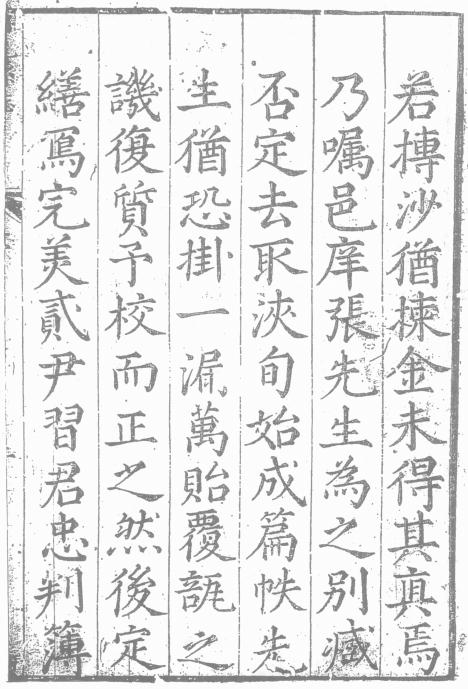 若摶沙猶揀金未得其真焉
乃囑邑庠張先生為之別臧
否定去取浹旬始成篇帙先
生猶恐掛一漏萬貽覆瓿之
譏復質予校而正之然後定
繕寫完美貳尹習君忠判簿